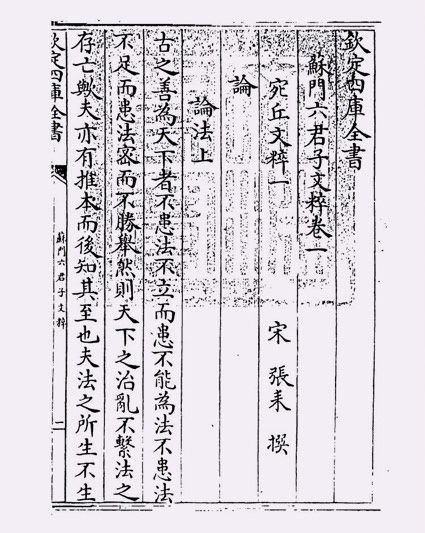 欽定四庫全書
蘇門六君子文粹卷一
宛丘文粹一 宋 張耒 撰
論
論法上
古之善為天下者不患法不立而患不能為法不患法
不足而患法密而不勝舉然則天下之治亂不繫法之
存亡歟夫亦有推本而後知其至也夫法之所生不生
欽定四庫全書
蘇門六君子文粹
二